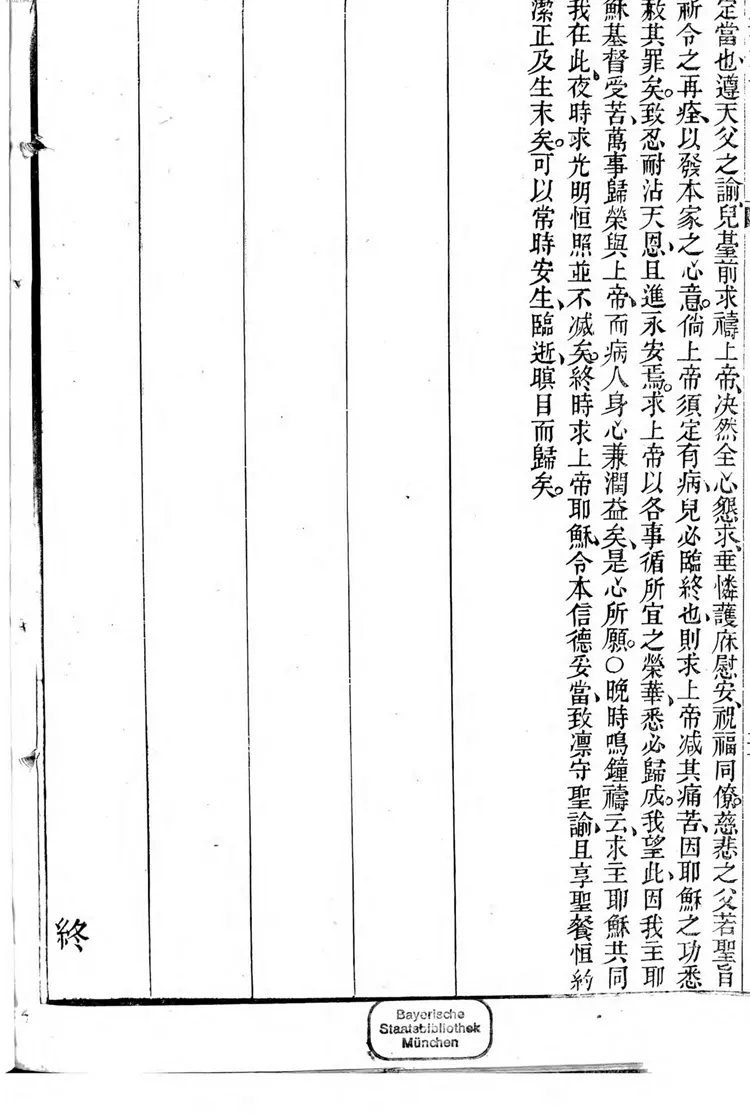 定當也、遵天父之諭、兒臺前求禱上帝、决然全心懇求、垂憐護庥慰安、祝福同僚。慈悲之父若聖旨
祈令之再痊、以發本家之心意。倘上帝須定有病、兒必臨終也、則求上帝减其痛苦、因耶穌之功悉
赦其罪矣。致忍耐沾天恩、且進永安焉。求上帝以各事循所宜之榮華、悉必歸成。我望此、因我主耶
穌基督受苦、萬事歸榮與上帝、而病人身心兼潤益矣、是心所願。○晚時鳴鐘禱云、求主耶穌共同
我在此、夜時求光明恒照並不滅矣。終時求上帝耶穌、令本信德妥當、致凛守聖諭、且享聖餐恒約
潔正及生末矣。可以常時安生、臨逝、瞑目而歸矣。
終
Bayerische
Staatsbibliothek
München